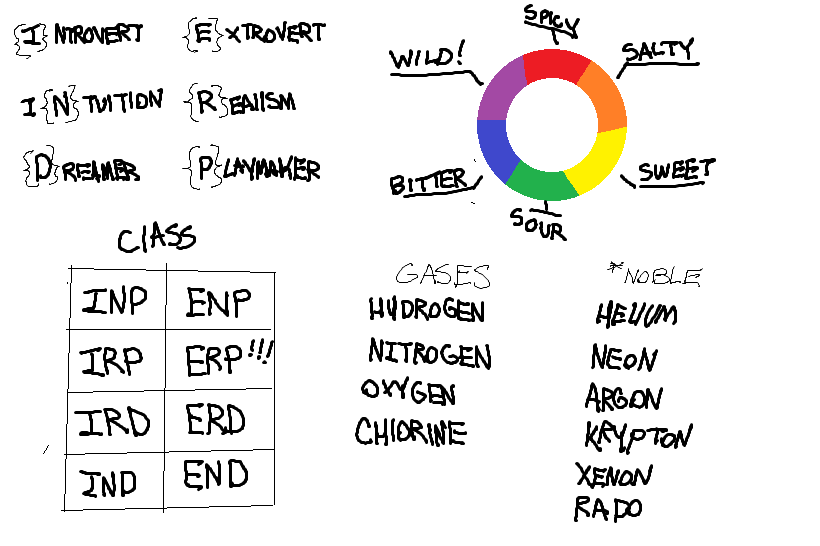 {I}NTROVERT {E}XTROVERT
I{N}TUITION {R}EAlISM
{D}REAMER {P}LAYMAKER
SPICY
WILD!
SALTY
BITTER
SWEET
SOUR
ClASS
INP ENP
IRP ERP!!!
IRD ERD
IND END
GASES
HYDROGEN
NITROGEN
OXYGEN
CHlORINE
*NOBLE
HELIUM
NEON
ARGON
KRYPTON
XENON
RADO